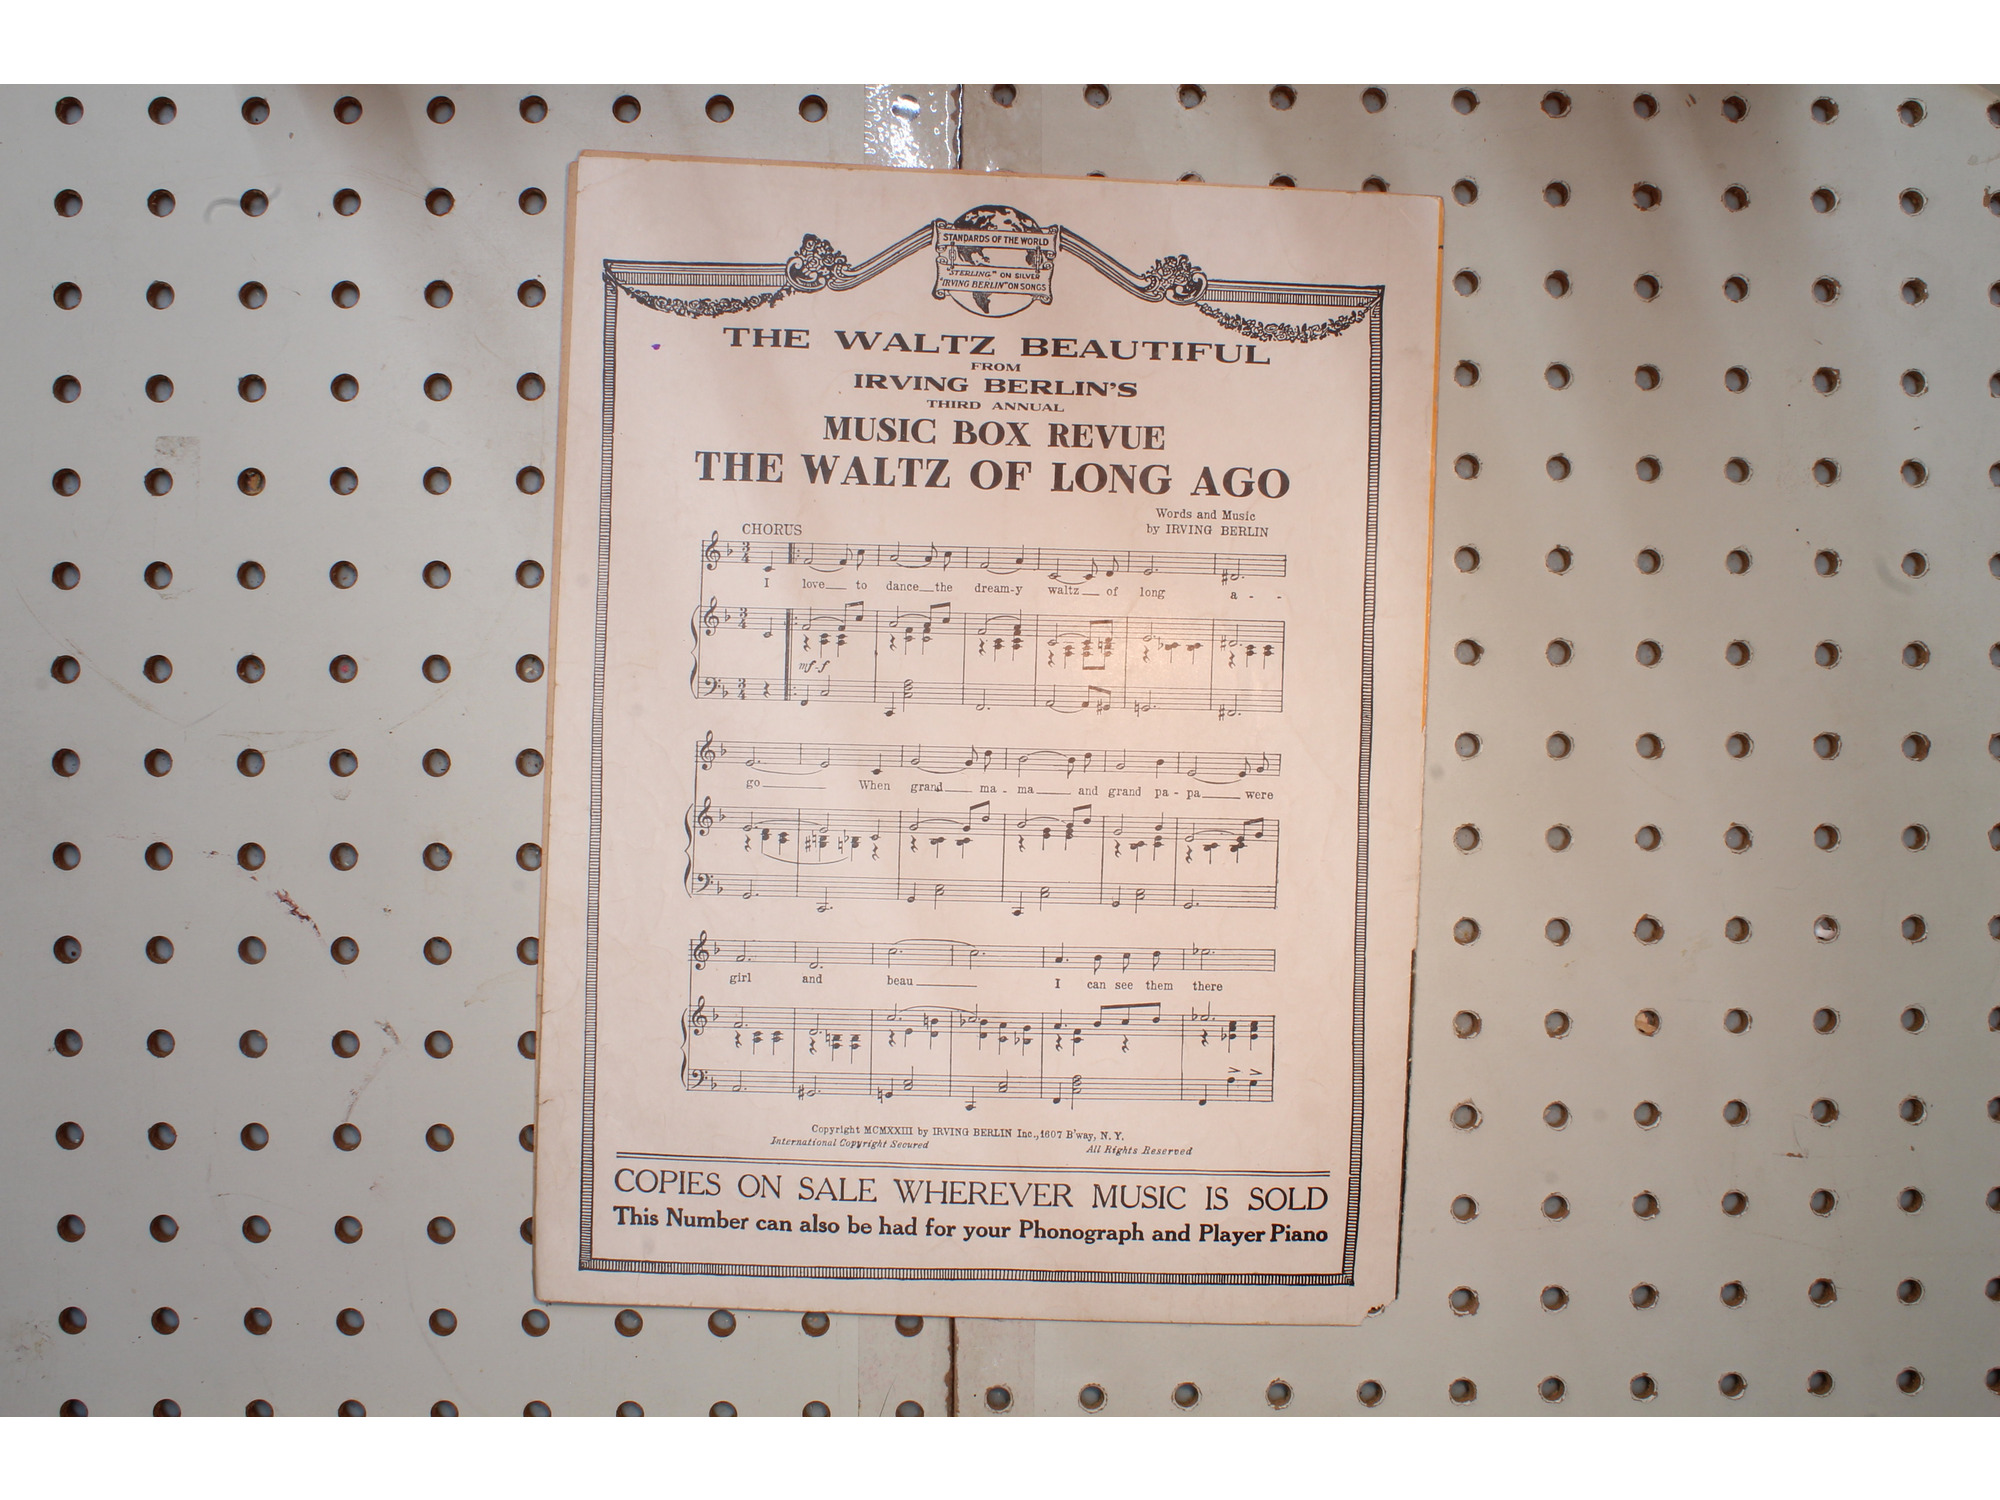 STANDARDS OF THE WORLD
"STERLING" ON SILVER
"IRVING BERLIN" ON SONGS
THE WALTZ BEAUTIFUL
FROM
IRVING BERLIN'S
THIRD ANNUAL
MUSIC BOX REVUE
THE WALTZ OF LONG AGO
Words and Music
by IRVING BERLIN
CHORUS
I love to dance the dream-y waltz of long a - -
mf-f
go When grand ma - ma and grand pa - pa were
girl and beau I can see them there
Copyright MCMXXIII by IRVING BERLIN Inc., 1607 B'way, N. Y.
International Copyright Secured All Rights Reserved
COPIES ON SALE WHEREVER MUSIC IS SOLD
This Number can also be had for your Phonograph and Player Piano